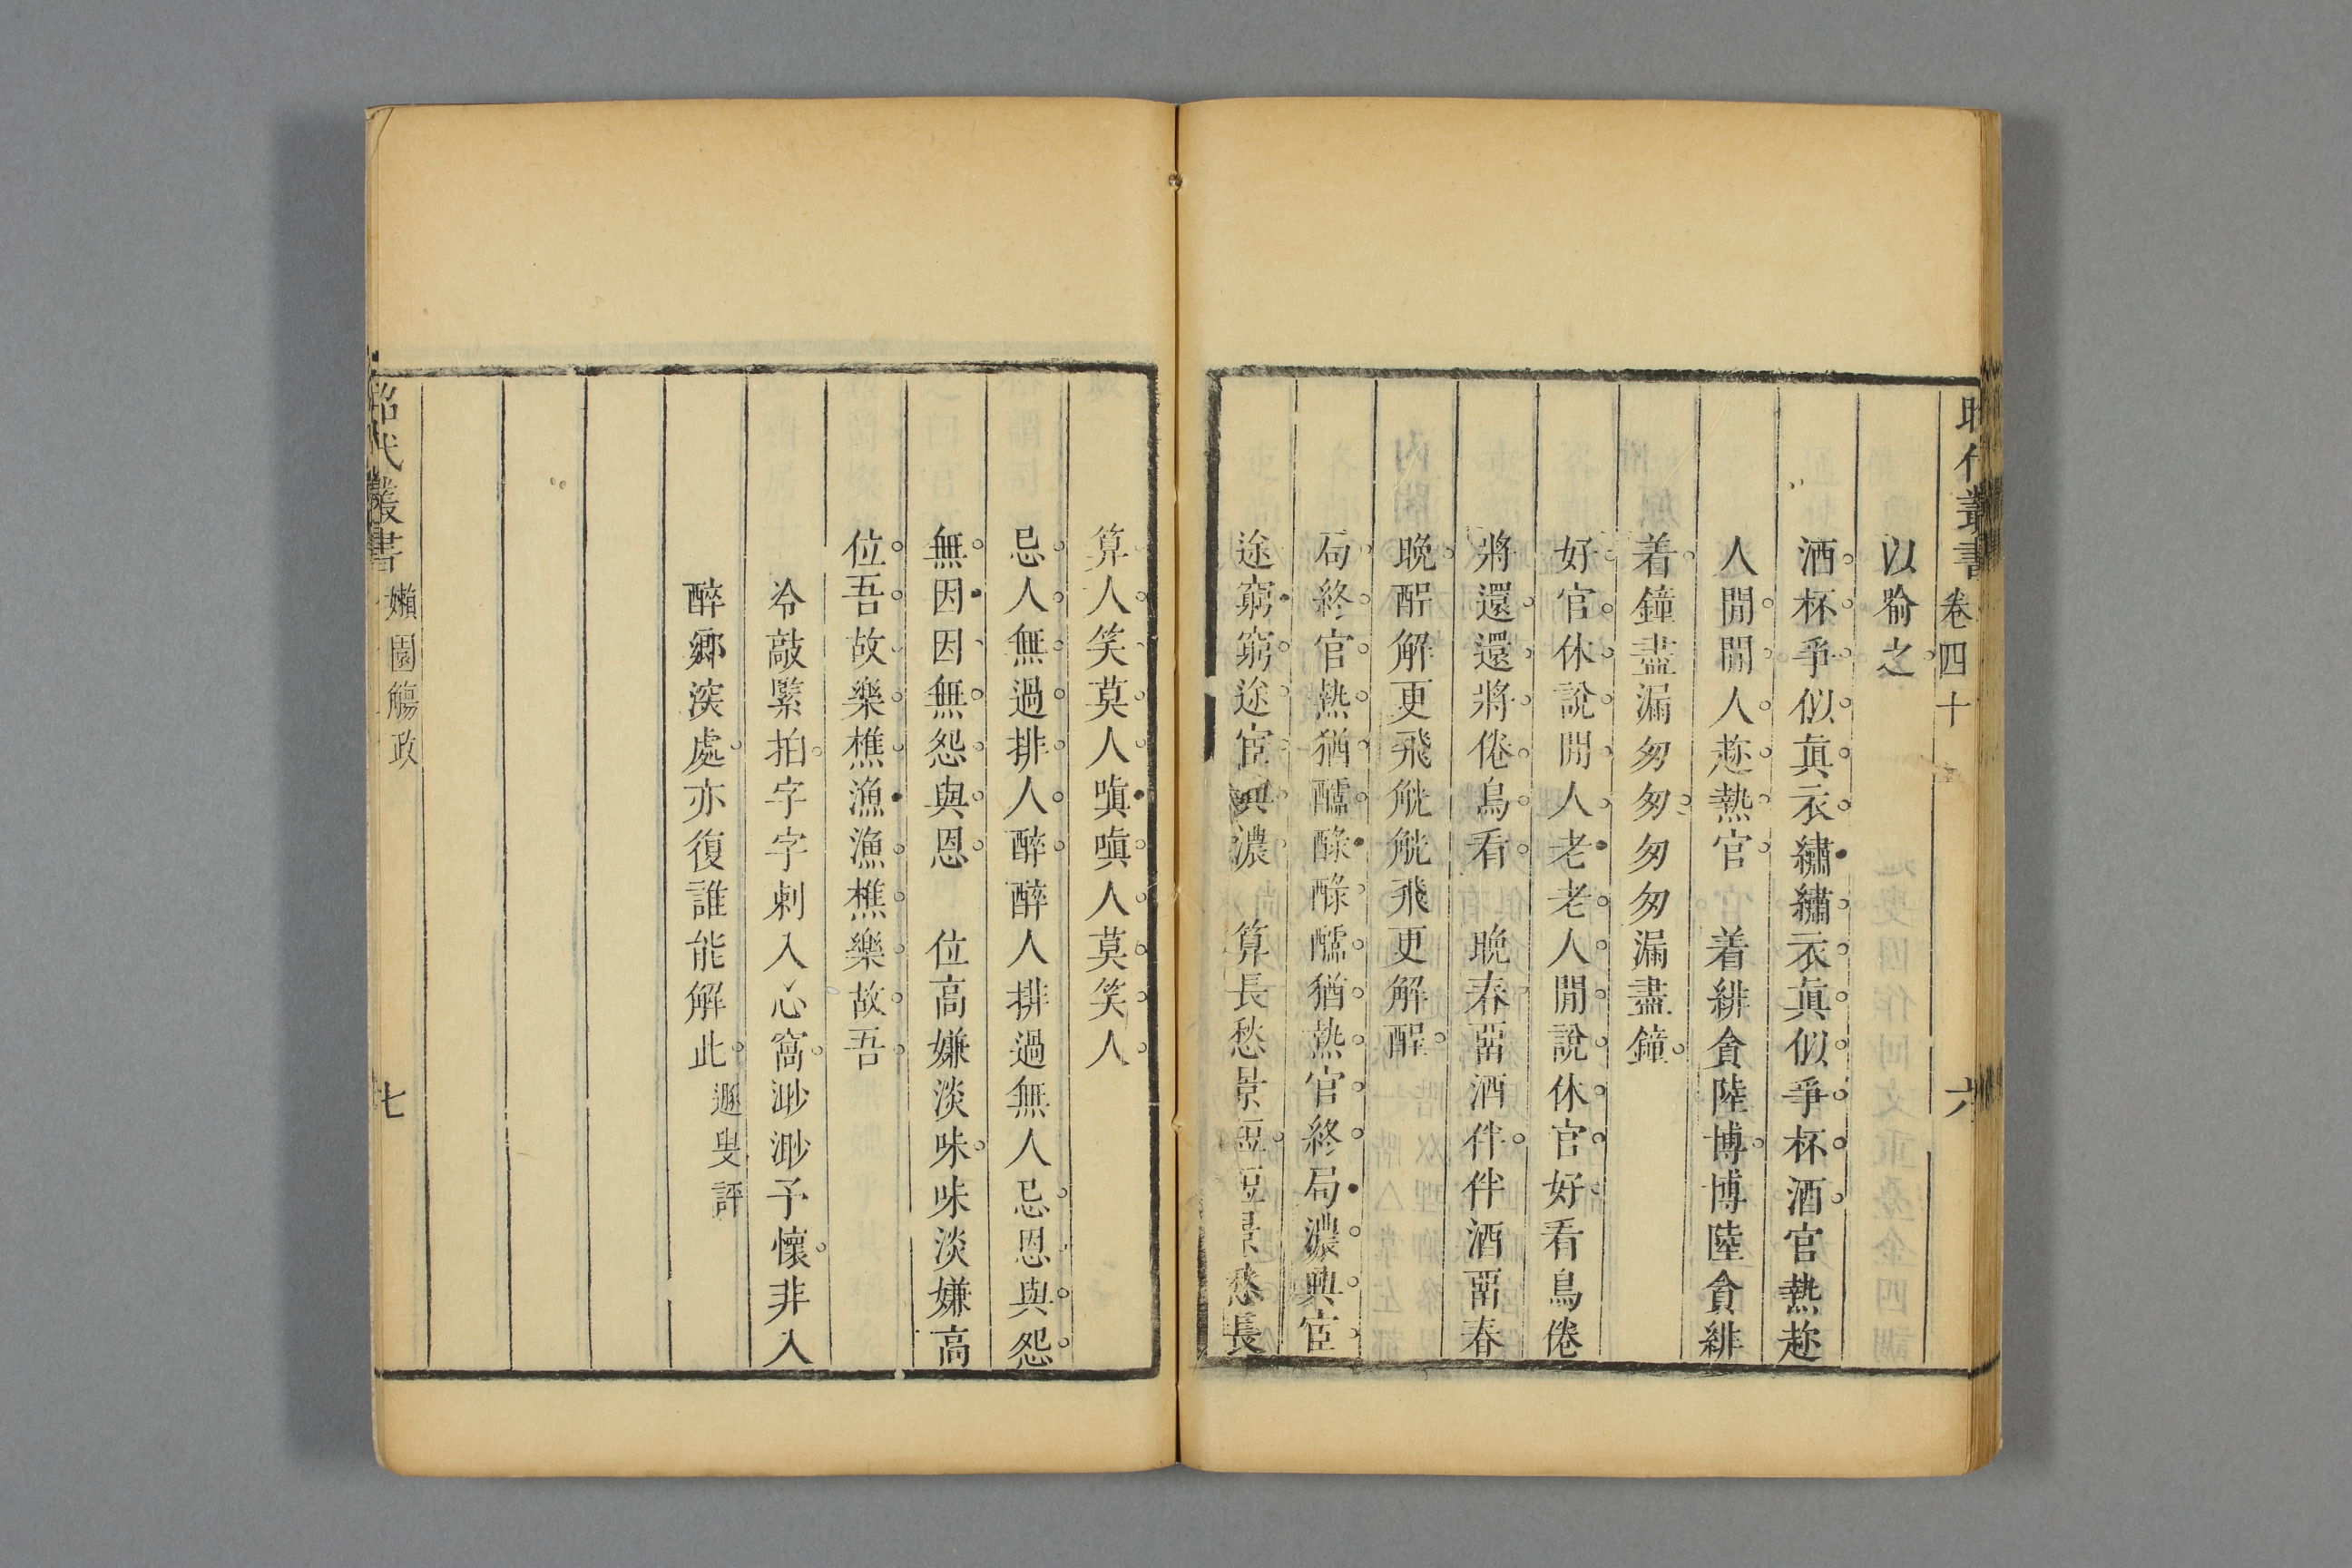 昭代叢書 卷四十 六
以喻之
酒杯爭似眞衣繡繡衣眞似爭杯酒官熱趂
人閒閒人趂熱官 着緋貪陸博博陸貪緋
着鐘盡漏匆匆匆匆漏盡鐘
好官休說閒人老老人閒說休官好看鳥倦
將還還將倦鳥看 晩春畱酒伴伴酒畱春
晩酲解更飛觥觥飛更解酲
局終官熱猶醹醁醁醹猶熱官終局濃興宦
途窮窮途宦興濃 算長愁景短短景愁長
算人笑莫人嗔嗔人莫笑人
忌人無過排人醉醉人排過無人忌恩與怨
無因因無怨與恩 位高嫌淡味味淡嫌高
位吾故樂樵漁漁樵樂故吾
冷敲緊拍字字刺入心窩渺渺予懷非入
醉鄉深處亦復誰能解此遯叟評
昭代叢書 嬾園觴政 七